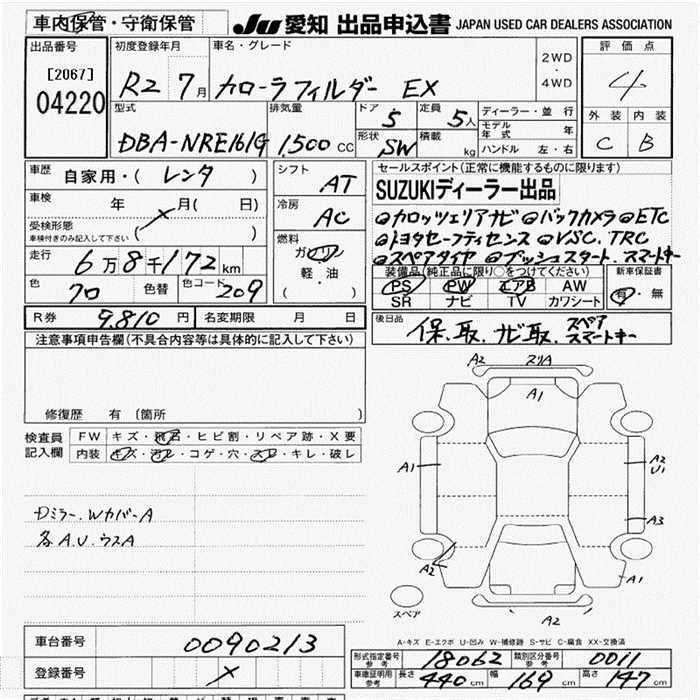 車内保管・守衛保管 JU 愛知 出品申込書 JAPAN USED CAR DEALERS ASSOCIATION
出品番号
[2067]
04220
初度登録年月 車名・グレード
R2 7月 カローラフィルダー EX
2WD
・
4WD
評価点
4
外装 内装
C B
型式 排気量 ドア 定員
DBA-NRE161G 1,500 CC 5 5人
形状 積載
SW kg
ディーラー・並行
モデル年式 年
ハンドル 左・右
車歴 自家用・( レンタ )
車検 年 月( 日)
受検形態
車検付きのみ記入して下さい ( )
走行 6万8千172km
色 クロ 色替 色コード 209
シフト
AT
冷房
AC
燃料
ガソリン
軽・油
( )
セールスポイント(正常に機能するものに限ります)
SUZUKIディーラー出品
◎カロッツェリアナビ ◎バックカメラ ◎ETC
◎トヨタセーフティセンス ◎VSC.TRC
◎スペアタイヤ ◎プッシュスタート.スマートキー
装備品(純正品に限り○をつけてください)
PS PW エアB AW
SR ナビ TV カワシート
新車保証書
有・無
R券 9,810円 名変期限 月 日
後日品 保.取.ナビ取.スペア スマートキー
注意事項申告欄(不具合内容等は具体的に記入して下さい)
修復歴 有 〔箇所 〕
検査員記入欄
FW キズ・飛石・ヒビ割・リペア跡・X要
内装 キズ・汚レ・コゲ・穴・スレ・キレ・破レ
Dミラー.WカバーA
各A.U.ウスA
A2 スリA
A1
A1
A2
U1
A3
A2
A1
A2
スペア
A-キズ E-エクボ U-凹み W-補修跡 S-サビ C-腐食 XX-交換済
車台番号 0090213
登録番号
形式指定番号 参考 18062 類別区分番号 参考 0011
車庫証明用 参考 長さ 440cm 幅 169cm 高さ 147cm